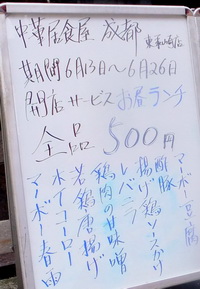 中華居食屋 成都 東葉山店
期間 6月13日～6月26日
開店サービス お昼ランチ
全品 500円
マーボー豆腐
酢豚
揚げ鶏ソースがけ
レバニラ
鶏肉の甘味噌
若鶏唐揚げ
ホイコーロー
マーボー春雨